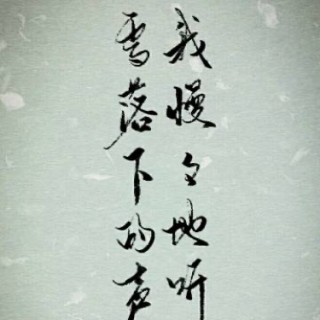 我慢々地听
雪落下的声